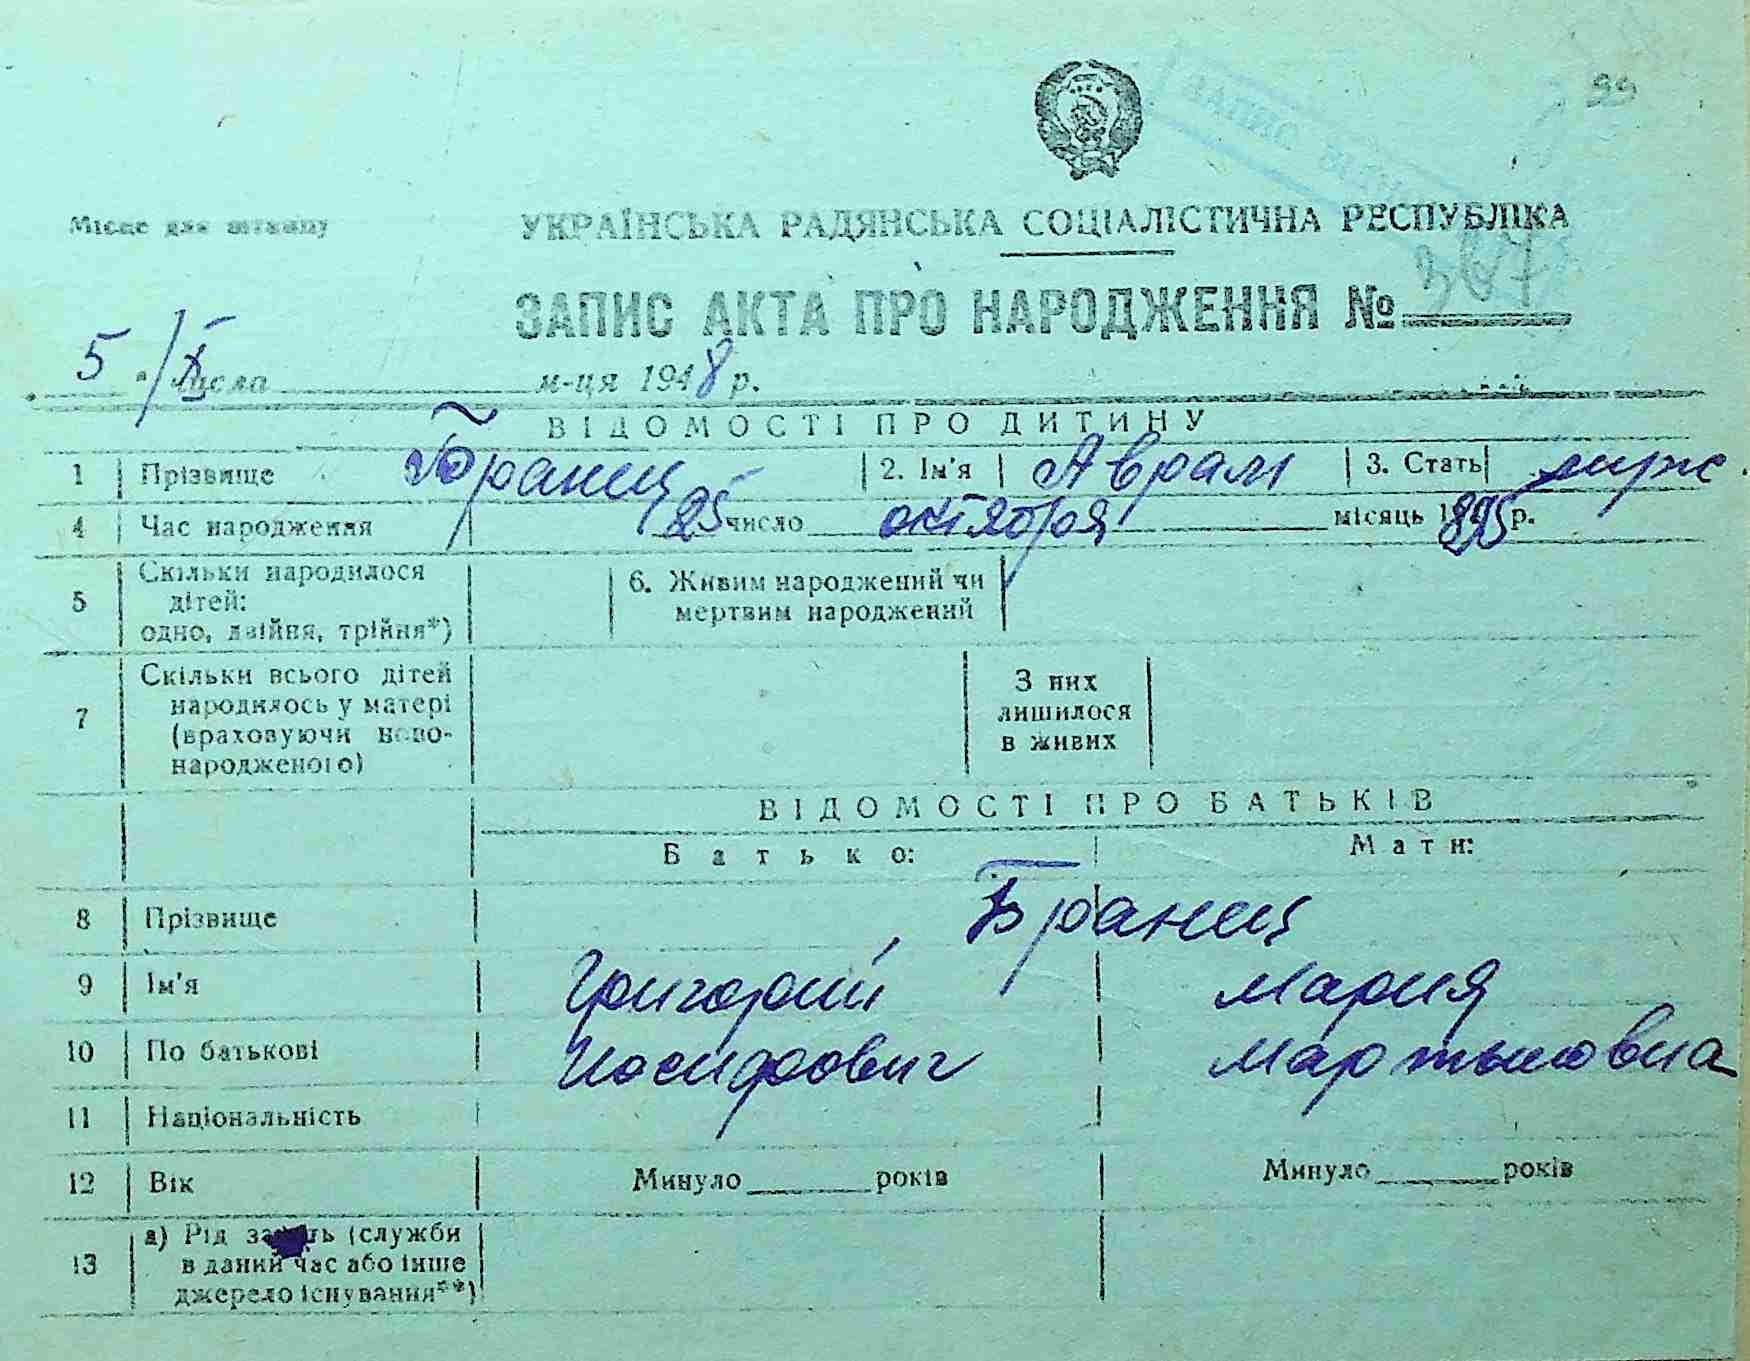 99
Місце для штампу
УКРАЇНСЬКА РАДЯНСЬКА СОЦІАЛІСТИЧНА РЕСПУБЛІКА
ЗАПИС АКТА ПРО НАРОДЖЕННЯ № 367
5 / X числа м-ця 1948 р.
ВІДОМОСТІ ПРО ДИТИНУ
1 Прізвище Бранец 2. Ім'я Аврам 3. Стать муж.
4 Час народження 25 число октября місяць 1895 р.
5 Скільки народилося дітей: одно, двійня, трійня*) 6. Живим народжений чи мертвим народжений
7 Скільки всього дітей народилось у матері (враховуючи новонародженого) З них лишилося в живих
ВІДОМОСТІ ПРО БАТЬКІВ
Батько: Мати:
8 Прізвище Бранец
9 Ім'я Григорий Мария
10 По батькові Иосифович Мартыновна
11 Національність
12 Вік Минуло ______ років Минуло ______ років
13 а) Рід занять (служби в даний час або інше джерело існування**)